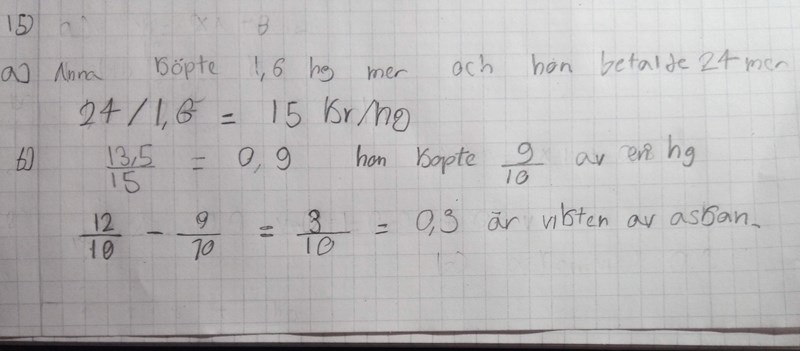 15)
a) Anna köpte 1,6 hg mer och hon betalde 24 mer
24/1,6 = 15 kr/hg
b) 13,5/15 = 0,9 hon köpte 9/10 av en hg
12/10 - 9/10 = 3/10 = 0,3 är vikten av askan.